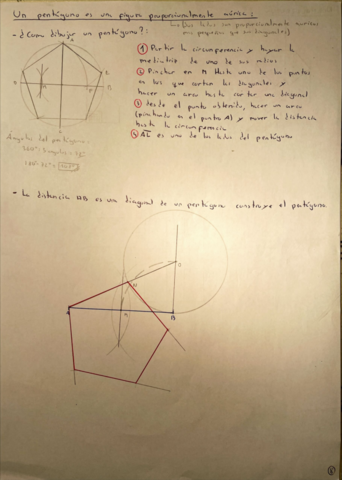 Un pentágono es una figura proporcionalmente áurica:
- ¿Como dibujar un pentágono?:
① Partir la circunferencia y hayar la
mediatriz de uno de sus radios
② Pinchar en M hasta uno de los puntos
en los que cortan las diagonales y
hacer un arco hasta cortar una diagonal
③ desde el punto obtenido, hacer un arco
(pinchando en el punto A) y mover la distancia
hasta la circunferencia
④ es uno de los lados del pentágono
Ángulos del pentágono:
- La distancia AB es una diagonal de un pentágono construye el pentágono
A
B